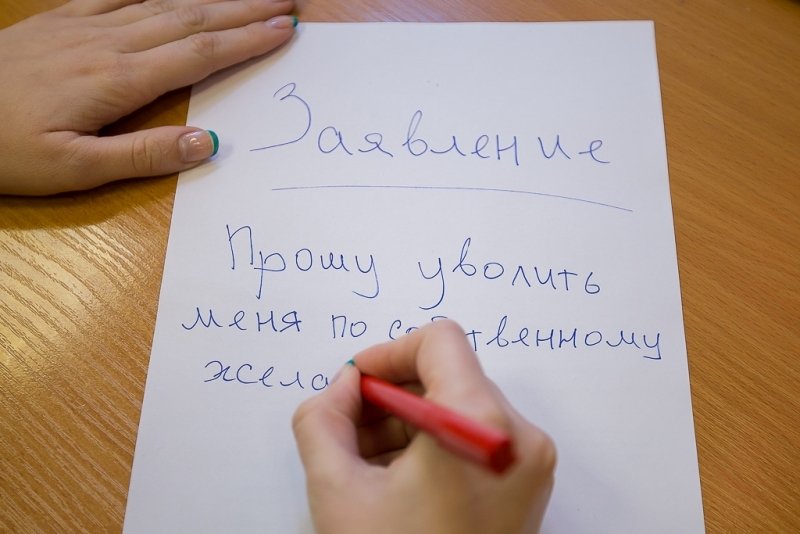 Заявление
Прошу уволить
меня по собственному
жела